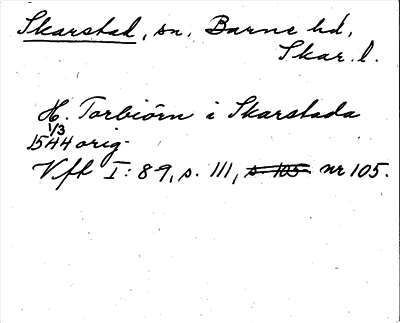 Skarstad, sn, Barne hd,
Skar. l.
H. Torbiörn i Skarstada
1/3
1544 orig.
Vfk I: 89, s. 111, s 105 nr 105.